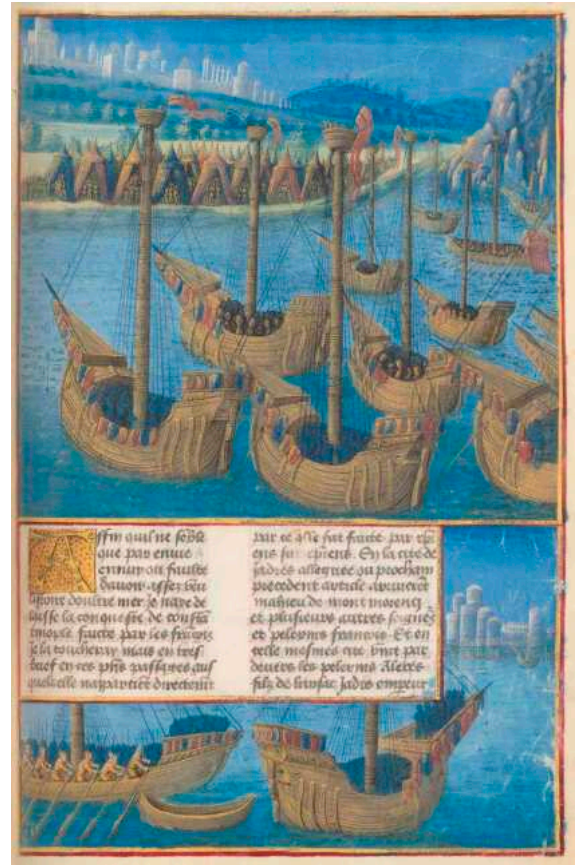 Affin quil ne semble
que par envie
ennuy ou faulte
davoir assez leu
listoire doultre mer je naye de
laisse la conqueste de constan
tinople faicte par les francois
je la toucheray mais en tres
brief en ces pns passaiges aus
quelz elle nappartiet directemt
par ce ꝙlle fut faicte par
ens sur En la cite de
jadres allegue ou prochain
precedent article arriveret
mahieu de mont morency
et plusieurs autres seignrs
et pelerins francois Et en
celle mesmes cite vint par
devers les pelerins Alexes
filz de jadis empeur